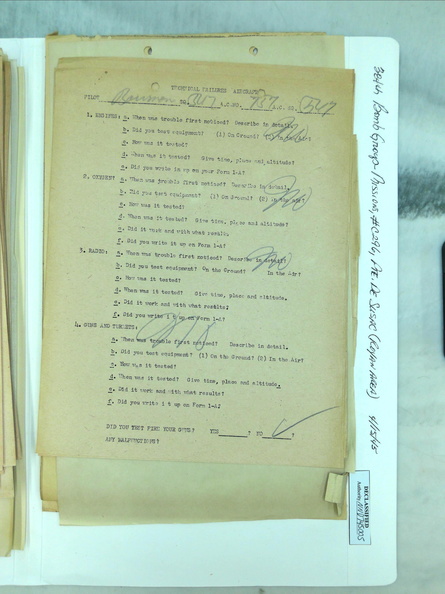 TECHNICAL FAILURES AIRCRAFT
PILOT Bauman SQ. A.C.NO. 787 A.C. NO.
1. ENGINES: a. When was trouble first noticed? Describe in detail.
b. Did you test equipment? (1) On Ground? (2) In the Air?
c. How was it tested?
d. When was it tested? Give time, place and altitude?
e. Did you wrote in up on your Form 1-A?
2. OXYGEN: a. When was trouble first noticed? Describe in detail.
b. Did you test equipment? (1) On Ground? (2) In the Air?
c. How was it tested?
d. When was it tested? Give time, place and altitude?
e. Did it work and with what results.
f. Did you write it up on Form 1-A?
3. RADIO: a. When was trouble first noticed? Describe in detail?
b. Did you test equipment? On the Ground? In the Air?
c. How was it tested?
d. When was it tested? Give time, place and altitude.
e. Did it work and with what results?
f. Did you write it up on Form 1-A?
4. GUNS AND TURRETS:
a. When was trouble first noticed? Describe in detail.
b. Did you test equipment? (1) On the Ground? (2) In the Air?
c. How was it tested?
d. When was it tested? Give time, place and altitude.
e. Did it work and with what results?
f. Did you write it up on Form 1-A?
DID YOU TEST FIRE YOUR GUNS? YES ______? NO ______?
ANY MALFUNCTIONS?
384th Bomb Group - Mission, #C296, PTE DE SUSAC (ROYAN AREA) 4/15/45
DECLASSIFIED
Authority NND 745005